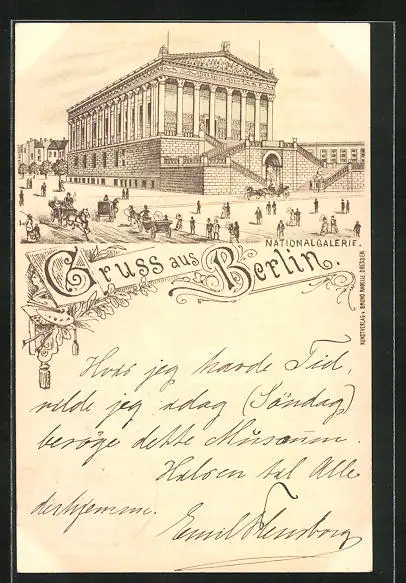 NATIONALGALERIE.
Gruss aus Berlin.
KUNSTVERLAG v. BRUNO RANELLI, DRESDEN.
Hvis jeg havde Tid,
vilde jeg idag (Söndag)
besøge dette Museum.
Hilsen til Alle
derhjemme.
Emil Flensborg